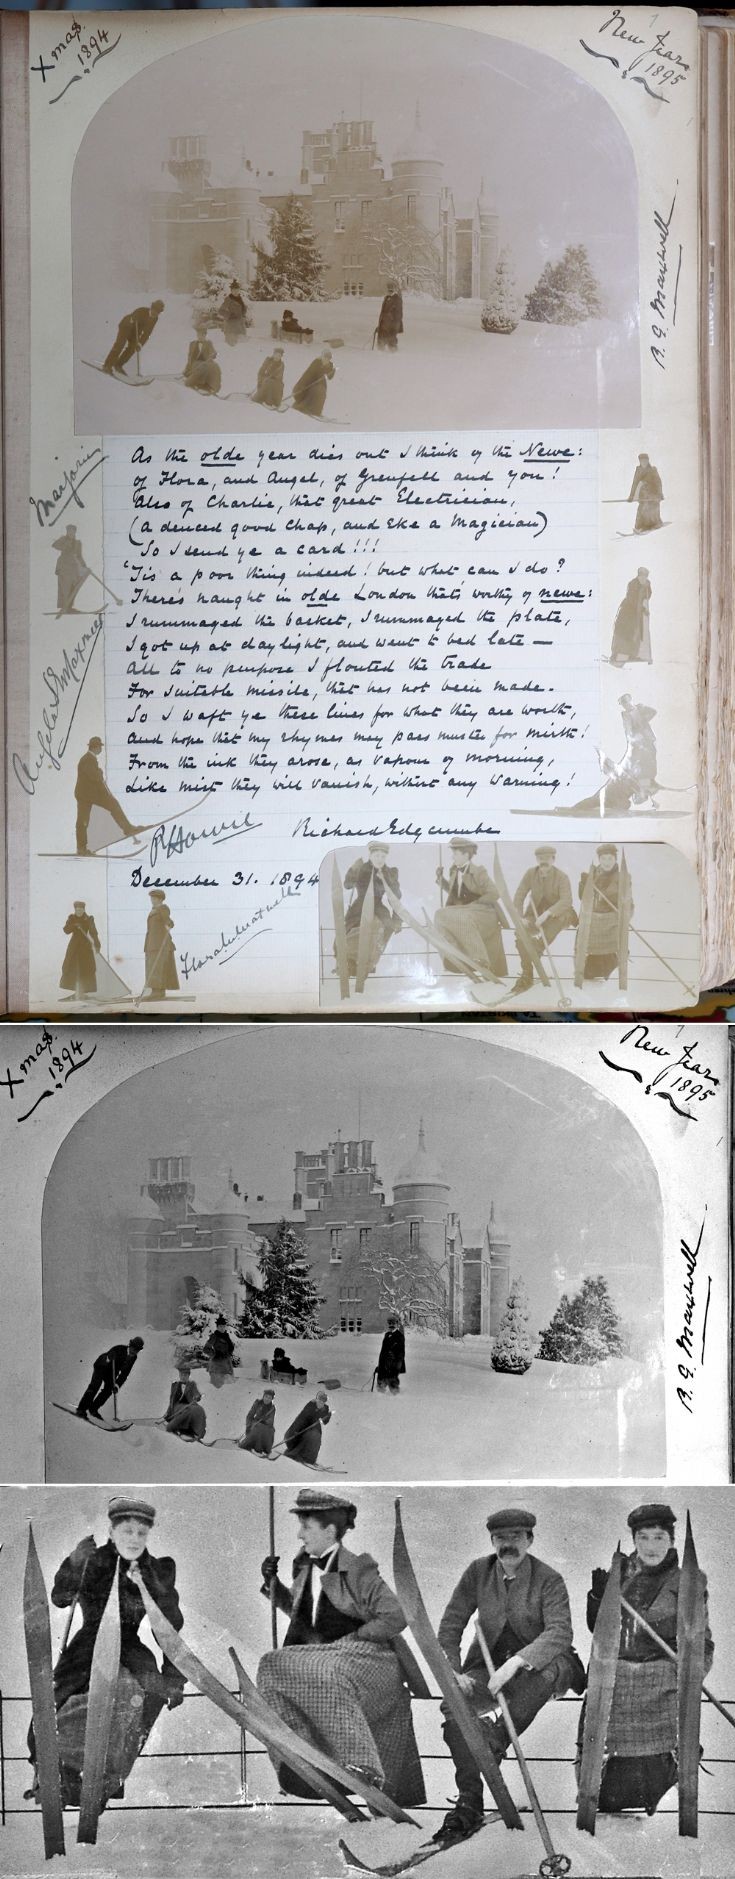 Xmas
1894
New Years
1895
B. G. Maxwell
As the olde year dies out I think of the Newe:
of Flora, and Angel, of Grenfell and you!
Also of Charlie, that great Electrician,
(a deuced good chap, and eke a Magician)
So I send ye a card!!!
'Tis a poor thing indeed! but what can I do?
There's naught in olde London that's worthy of newe:
I rummaged the basket, I rummaged the plate,
I got up at daylight, and went to bed late—
All to no purpose I flouted the trade
For suitable missile, that has not been made.
So I waft ye these lines for what they are worth,
And hope that my rhymes may pass muster for mirth!
From the ink they arose, as vapour of morning,
Like mist they will vanish, without any warning!
Richard Edgcumbe
December 31. 1894
Marjorie
Howie
Xmas
1894
New Years
1895
B. G. Maxwell